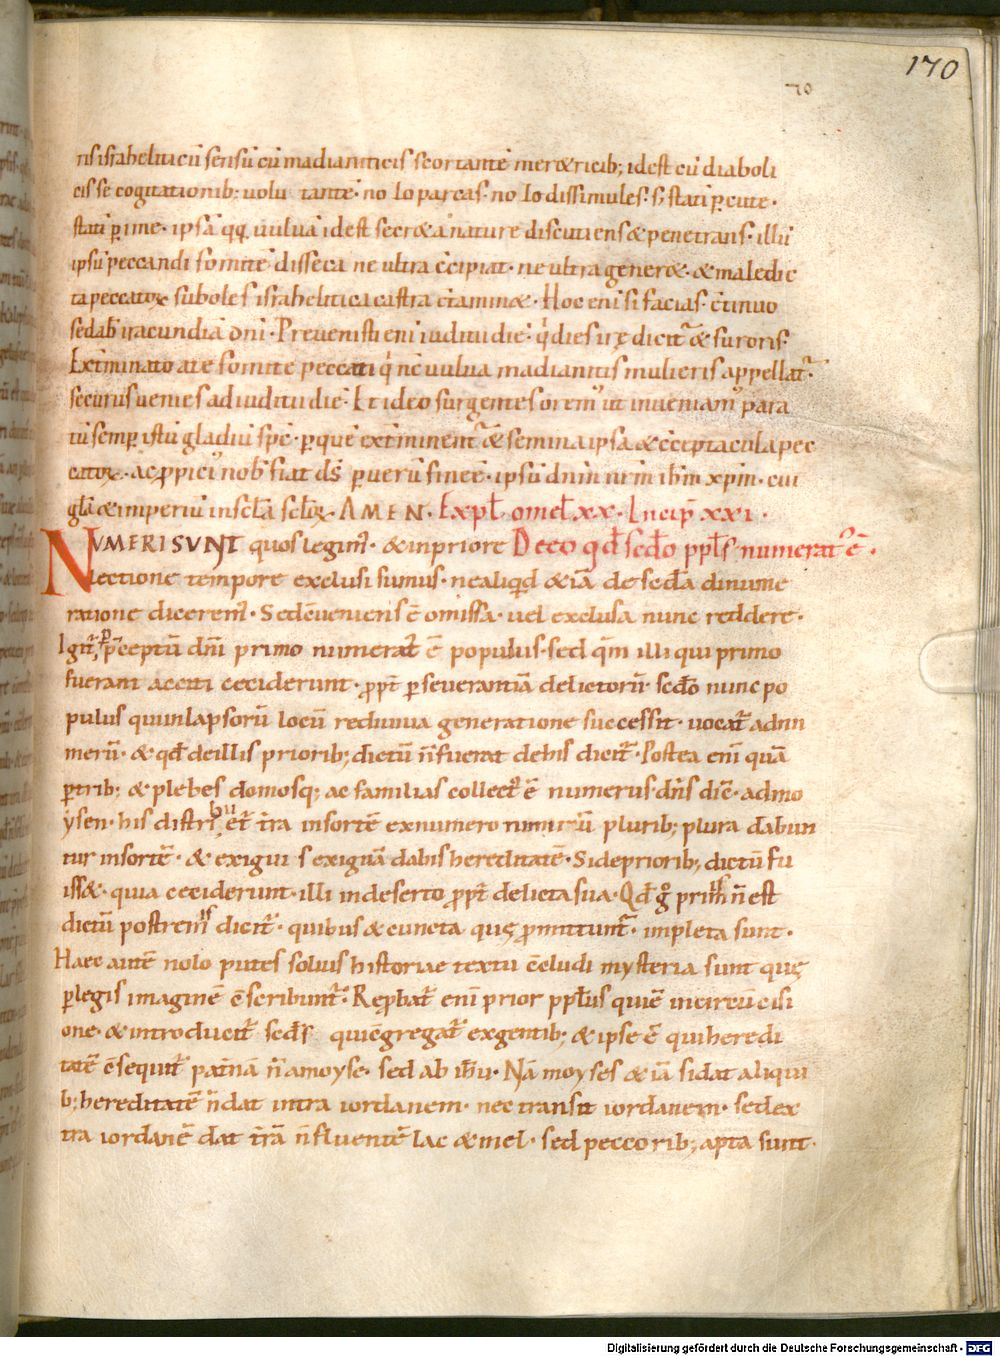 170
70
ns israheliticū sensū cū madianiticis scortantē meretricib; id est cū diaboli
cis se cogitationib; uolutantē· nolo parcas· nolo dissimules· s; statī ꝑcute·
statī ꝑime· ipsā qq· uuluā id est secreta naturę discutiens & penetrans· illū
ipsū peccandi fomitē disseca ne ultra c̄cipiat· ne ultra generet· & maledic
ta peccatoꝝ suboles israhelitica castra c̄taminet· Hoc eni si facias· c̄tinuo
sedab iracundiā dni· Preuenisti eni iuditii diē· q̇ dies irę dicit̃ & furoris·
Exterminato ate fomite peccati q̇ nc̄ uulua madianitis mulieris appellat̃·
securus uenies ad iuditii diē· Et ideo surgentes orem᾽ ut inueniam᾽ para
tū semꝑ istū gladiū sp̄c· ꝑ quē exterminent̃ & semina ipsa & c̄ceptacula pec
catoꝝ· ac ꝓpiciꝰ nob̄ fiat dś ꝑ uerū fineē· ipsū dnm nrm ihm xpm· cui
glā & imperiū in sclā scloꝝ· AMEN· Expł omeł xx· Incip̄ xxi·
NUMERI SUNT quos legim᾽· & in priore De eo qđ scđo ppłs numerat᾽ ē·
lectione tempore exclusi sumus· ne aliqid & iā de scđa dinume
ratione dicerem᾽· Sed c̄ueniens ē omissa· uel exclusa nunc reddere·
Igit̃ ꝑ p̄ceptū dńi primo numerat᾽ ē populus· sed qm̄ illi qui primo
fuerant acciti ceciderunt· ꝓpt̄ ꝑseuerantiā delictorū· scđo nunc po
pulus qui in lapsorū locū rediuiua generatione successit· uocat̃ ad nu
merū· & qđ de illis priorib; dictū n̄ fuerat de his dicit̃· Postea eni quā
ꝑ trib; & plebes domosq; ac familias collect᾽ ē numerus· dńs dic̄· ad mo
ysen· his distribuet̃ t̃ra in sortē ex numero nominū plurib; plura dabun
tur in sortē· & exiguis exiguā dabis hereditatē· Si de priorib; dictū fu
isset· quia ceciderunt· illi in deserto ꝓpt̄ delicta sua· Qđ g̊ primis n̄ est
dictū postremis dicit̃· quibus & cuncta quę ꝓmittunt̃· impleta sunt·
Haec autē nolo putes solius historiae textu c̄cludi mysteria sunt quę
ꝑ legis imaginē c̄scribunt̃· Reꝓbat̃ eni prior ppłus qui ē in circūcisi
one· & introducit̃ scđs qui c̄gregat̃ ex gentib; & ipse ē qui heredi
tatē c̄sequit̃ paternā n̄ a moyse· sed ab ihu· Nā moyses & iā si dat aliqui
b; hereditatē n̄ dat intra iordanem· nec transit iordanem· sed ex
tra iordanē dat t̃rā n̄ fluentē lac & mel· sed peccorib; apta sunt·
Digitalisierung gefördert durch die Deutsche Forschungsgemeinschaft - DFG